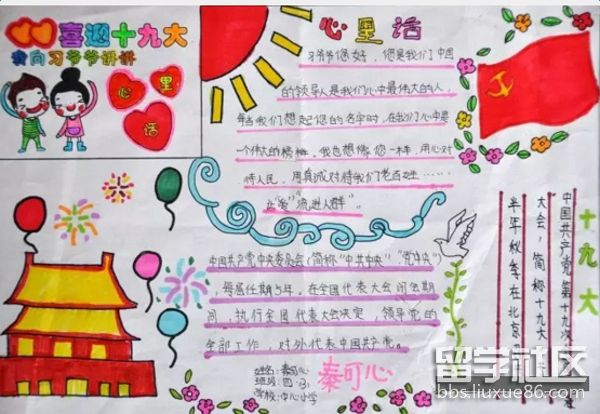 喜迎十九大
我向习爷爷讲讲
心里
话
心里话
习爷爷您好，您是我们中国
的领导人是我们心中最伟大的人，
每当我们想起您的名字时，在我们心中是
一个伟大的榜样，我也想像您一样，用心对
待人民，用真诚对待我们老百姓……
让“爱”流进人群”。
中国共产党中央委员会（简称“中共中央”“党中央”）
，每届任期5年，在全国代表大会闭会期
间，执行全国代表大会决定，领导党的
全部工作，对外代表中国共产党。
姓名：秦可心
班级：四（3）
学校：中心小学
秦可心
十九大
中国共产党第十九次
大会，简称十九大
半年秋季在北京
留学社区
bbs.liuxue86.com